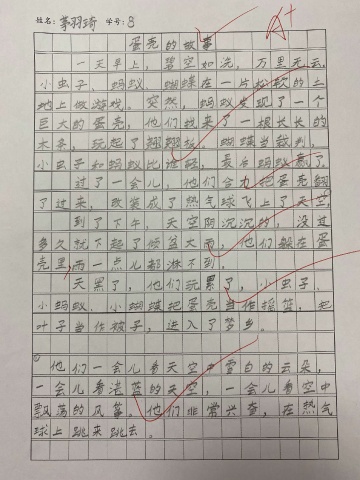 姓名：茅羽琦 学号：8
A+
蛋壳的故事
一天早上，碧空如洗，万里无云，
小虫子、蚂蚁、蝴蝶在一片松软的土
地上做游戏。突然，蚂蚁发现了一个
巨大的蛋壳，他们找来了一根长长的
木条，玩起了翘翘板。蝴蝶当裁判，
小虫子和蚂蚁比谁轻，最后蚂蚁赢了。
过了一会儿，他们合力把蛋壳翻
了过来，改装成了热气球飞上了天空。
到了下午，天空阴沉沉的，没过
多久就下起了倾盆大雨，他们躲在蛋
壳里，雨一点儿都淋不到。
天黑了，他们玩累了，小虫子、
小蚂蚁、小蝴蝶把蛋壳当作摇篮，把
叶子当作被子，进入了梦乡。
他们一会儿看天空中雪白的云朵，
一会儿看湛蓝的天空，一会儿看空中
飘荡的风筝。他们非常兴奋，在热气
球上跳来跳去。